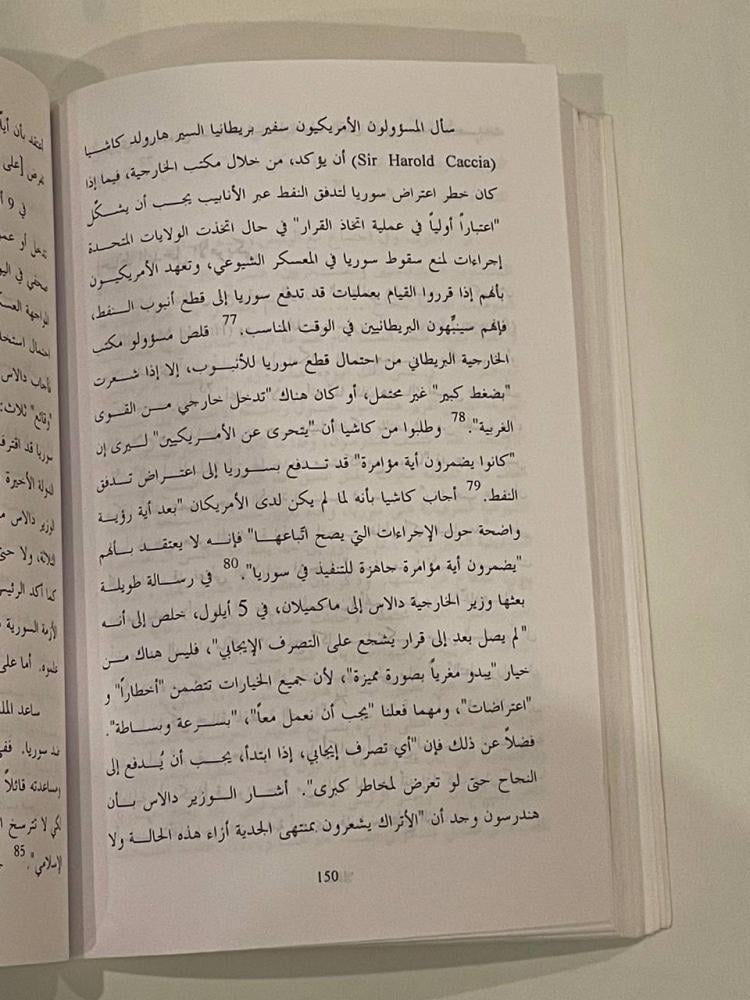 سأل المسؤولون الأمريكيون سفير بريطانيا السير هارولد كاشيا
(Sir Harold Caccia) أن يؤكد، من خلال مكتب الخارجية، فيما إذا
كان خطر اعتراض سوريا لتدفق النفط عبر الأنابيب يجب أن يشكّل
"اعتباراً أولياً في عملية اتخاذ القرار" في حال اتخذت الولايات المتحدة
إجراءات لمنع سقوط سوريا في المعسكر الشيوعي، وتعهد الأمريكيون
بأنهم إذا قرروا القيام بعمليات قد تدفع سوريا إلى قطع أنبوب النفط،
فإنهم سينبِّهون البريطانيين في الوقت المناسب.77 قلص مسؤولو مكتب
الخارجية البريطاني من احتمال قطع سوريا للأنبوب، إلا إذا شعرت
"بضغط كبير" غير محتمل، أو كان هناك "تدخل خارجي من القوى
الغربية".78 وطلبوا من كاشيا أن "يتحرى عن الأمريكيين" ليرى إن
"كانوا يضمرون أية مؤامرة" قد تدفع بسوريا إلى اعتراض تدفق
النفط.79 أجاب كاشيا بأنه لما لم يكن لدى الأمريكان "بعد أية رؤية
واضحة حول الإجراءات التي يصح اتّباعها" فإنه لا يعتقد بأنهم
"يضمرون أية مؤامرة جاهزة للتنفيذ في سوريا".80 في رسالة طويلة
بعثها وزير الخارجية دالاس إلى ماكميلان، في 5 أيلول، خلص إلى أنه
"لم يصل بعد إلى قرار يشجع على التصرف الإيجابي"، فليس هناك من
خيار "يبدو مغرياً بصورة مميزة"، لأن جميع الخيارات تتضمن "أخطاراً" و
"اعتراضات"، ومهما فعلنا "يجب أن نعمل معاً"، "بسرعة وبساطة".
فضلاً عن ذلك فإن "أي تصرف إيجابي، إذا ابتدأ، يجب أن يُدفع إلى
النجاح حتى لو تعرض لمخاطر كبرى". أشار الوزير دالاس بأن
هندرسون وجد أن "الأتراك يشعرون بمنتهى الجدية أزاء هذه الحالة ولا
150
أعتقد بأن
[على
في 9
تدخل أو
صحفي في
احتمال
فأجاب دالاس
"وقائع" ثلاث:
سوريا قد
الدولة الأخيرة
الوزير دالاس
الثلاثة، ولا
كما أكد
الأزمة السورية
أما على
ساعد
ضد سوريا.
ومساعدته قائلاً
لكي لا تترسخ
الإسلامي".85